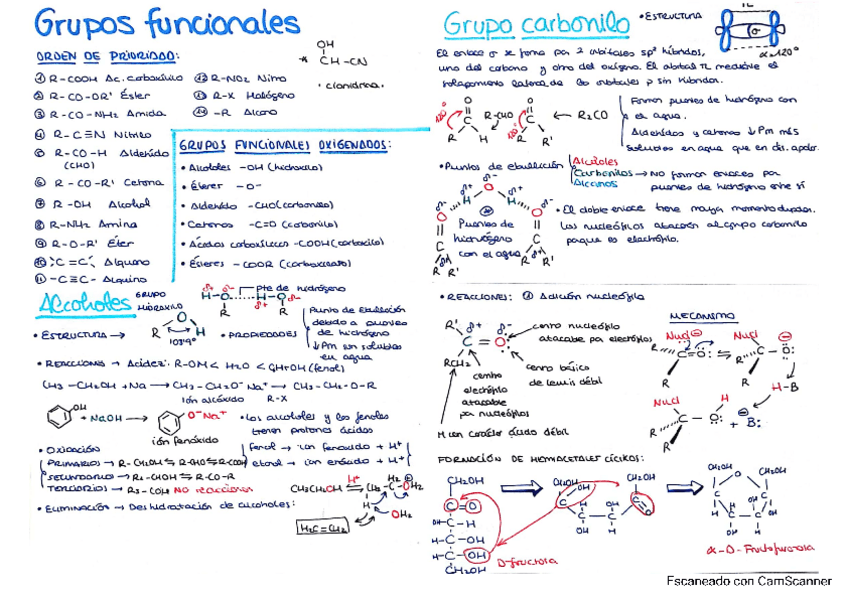 Grupos funcionales
ORDEN DE PRIORIDAD:
OH
* CH-CN
• cianidrina.
① R-COOH Ac. carboxílico
② R-CO-OR' Éster
③ R-CO-NH₂ Amida
④ R-C≡N Nitrilo
⑤ R-CO-H Aldehído
(CHO)
⑥ R-CO-R' Cetona
⑦ R-OH Alcohol
⑧ R-NH₂ Amina
⑨ R-O-R' Éter
⑩ C=C Alqueno
⑪ -C≡C- Alquino
⑫ R-NO₂ Nitro
⑬ R-X Halógeno
⑭ -R Alcano
GRUPOS FUNCIONALES OXIGENADOS:
• Alcoholes -OH (hidroxilo)
• Éteres -O-
• Aldehído -CHO (carbonilo)
• Cetonas -C=O (carbonilo)
• Ácidos carboxílicos -COOH (carboxilo)
• Ésteres -COOR (carboxilato)
Alcoholes
GRUPO
HIDROXILO
• ESTRUCTURA →
O
R H
• PROPIEDADES
Pte de hidrógeno
H-O H-O
R R
Punto de Ebullición
debido a puentes
de hidrógeno
↓Pm son solubles
en agua
• REACCIONES → Acidez: R-OH < H₂O < (fenol)
CH₃-CH₂OH + Na → CH₃-CH₂O⁻ Na⁺ → CH₃-CH₂-O-R
ión alcóxido R-X
OH + NaOH → O⁻Na⁺
ión fenóxido
• Los alcoholes y los fenoles
tienen protones ácidos
fenol → ion fenoxido + H⁺
etanol → ion + H⁺
• OXIDACIÓN
PRIMARIOS → R-CH₂OH ⇆ R-CHO ⇆ R-COOH
SECUNDARIO → R₂-CHOH ⇆ R-CO-R
TERCIARIOS → R₃-COH NO reacciona
• ELIMINACIÓN → Deshidratación de alcoholes:
H₂C=CH₂
OH₂
Grupo carbonilo
• ESTRUCTURA
α≈120°
El enlace σ se forma por 2 orbitales sp² híbridos,
uno del carbono y otro del oxígeno. El orbital π mediante el
solapamiento lateral de los orbitales p sin híbridar.
120°
O
C
R H
R-CHO
120°
O
C
R R'
← R₂CO
Forman puentes de hidrógeno con
el agua.
Aldehídos y cetonas ↓Pm más
solubles en agua que en dis. apolar.
• Puntos de ebullición
Alcoholes
Carbonilos → No forman enlaces por
puentes de hidrógeno entre sí
Alcanos
Puentes de
hidrógeno
con el agua
• El doble enlace tiene mayor momento dipolar.
Los nucleófilos atacarán al grupo carbonilo
porque es electrófilo.
• REACCIONES: ① Adición nucleófila
R'
C=O:
RCH₂
centro nucleófilo
atacable por electrófilos
centro básico
de Lewis débil
centro
electrófilo
atacable
por nucleófilos
H con carácter ácido débil
MECANISMO
Nucl
R C=O: ⇆ Nucl C-O:
R
H-B
Nucl
C-O: H + B:
R
FORMACIÓN DE HEMIACETALES CÍCLICOS:
CH₂OH
C=O
OH-C-H
H-C-OH
H-C-OH
CH₂OH
D-fructosa
CH₂OH
OH
CH₂OH
α-D-Fructofuranosa
Escaneado con CamScanner